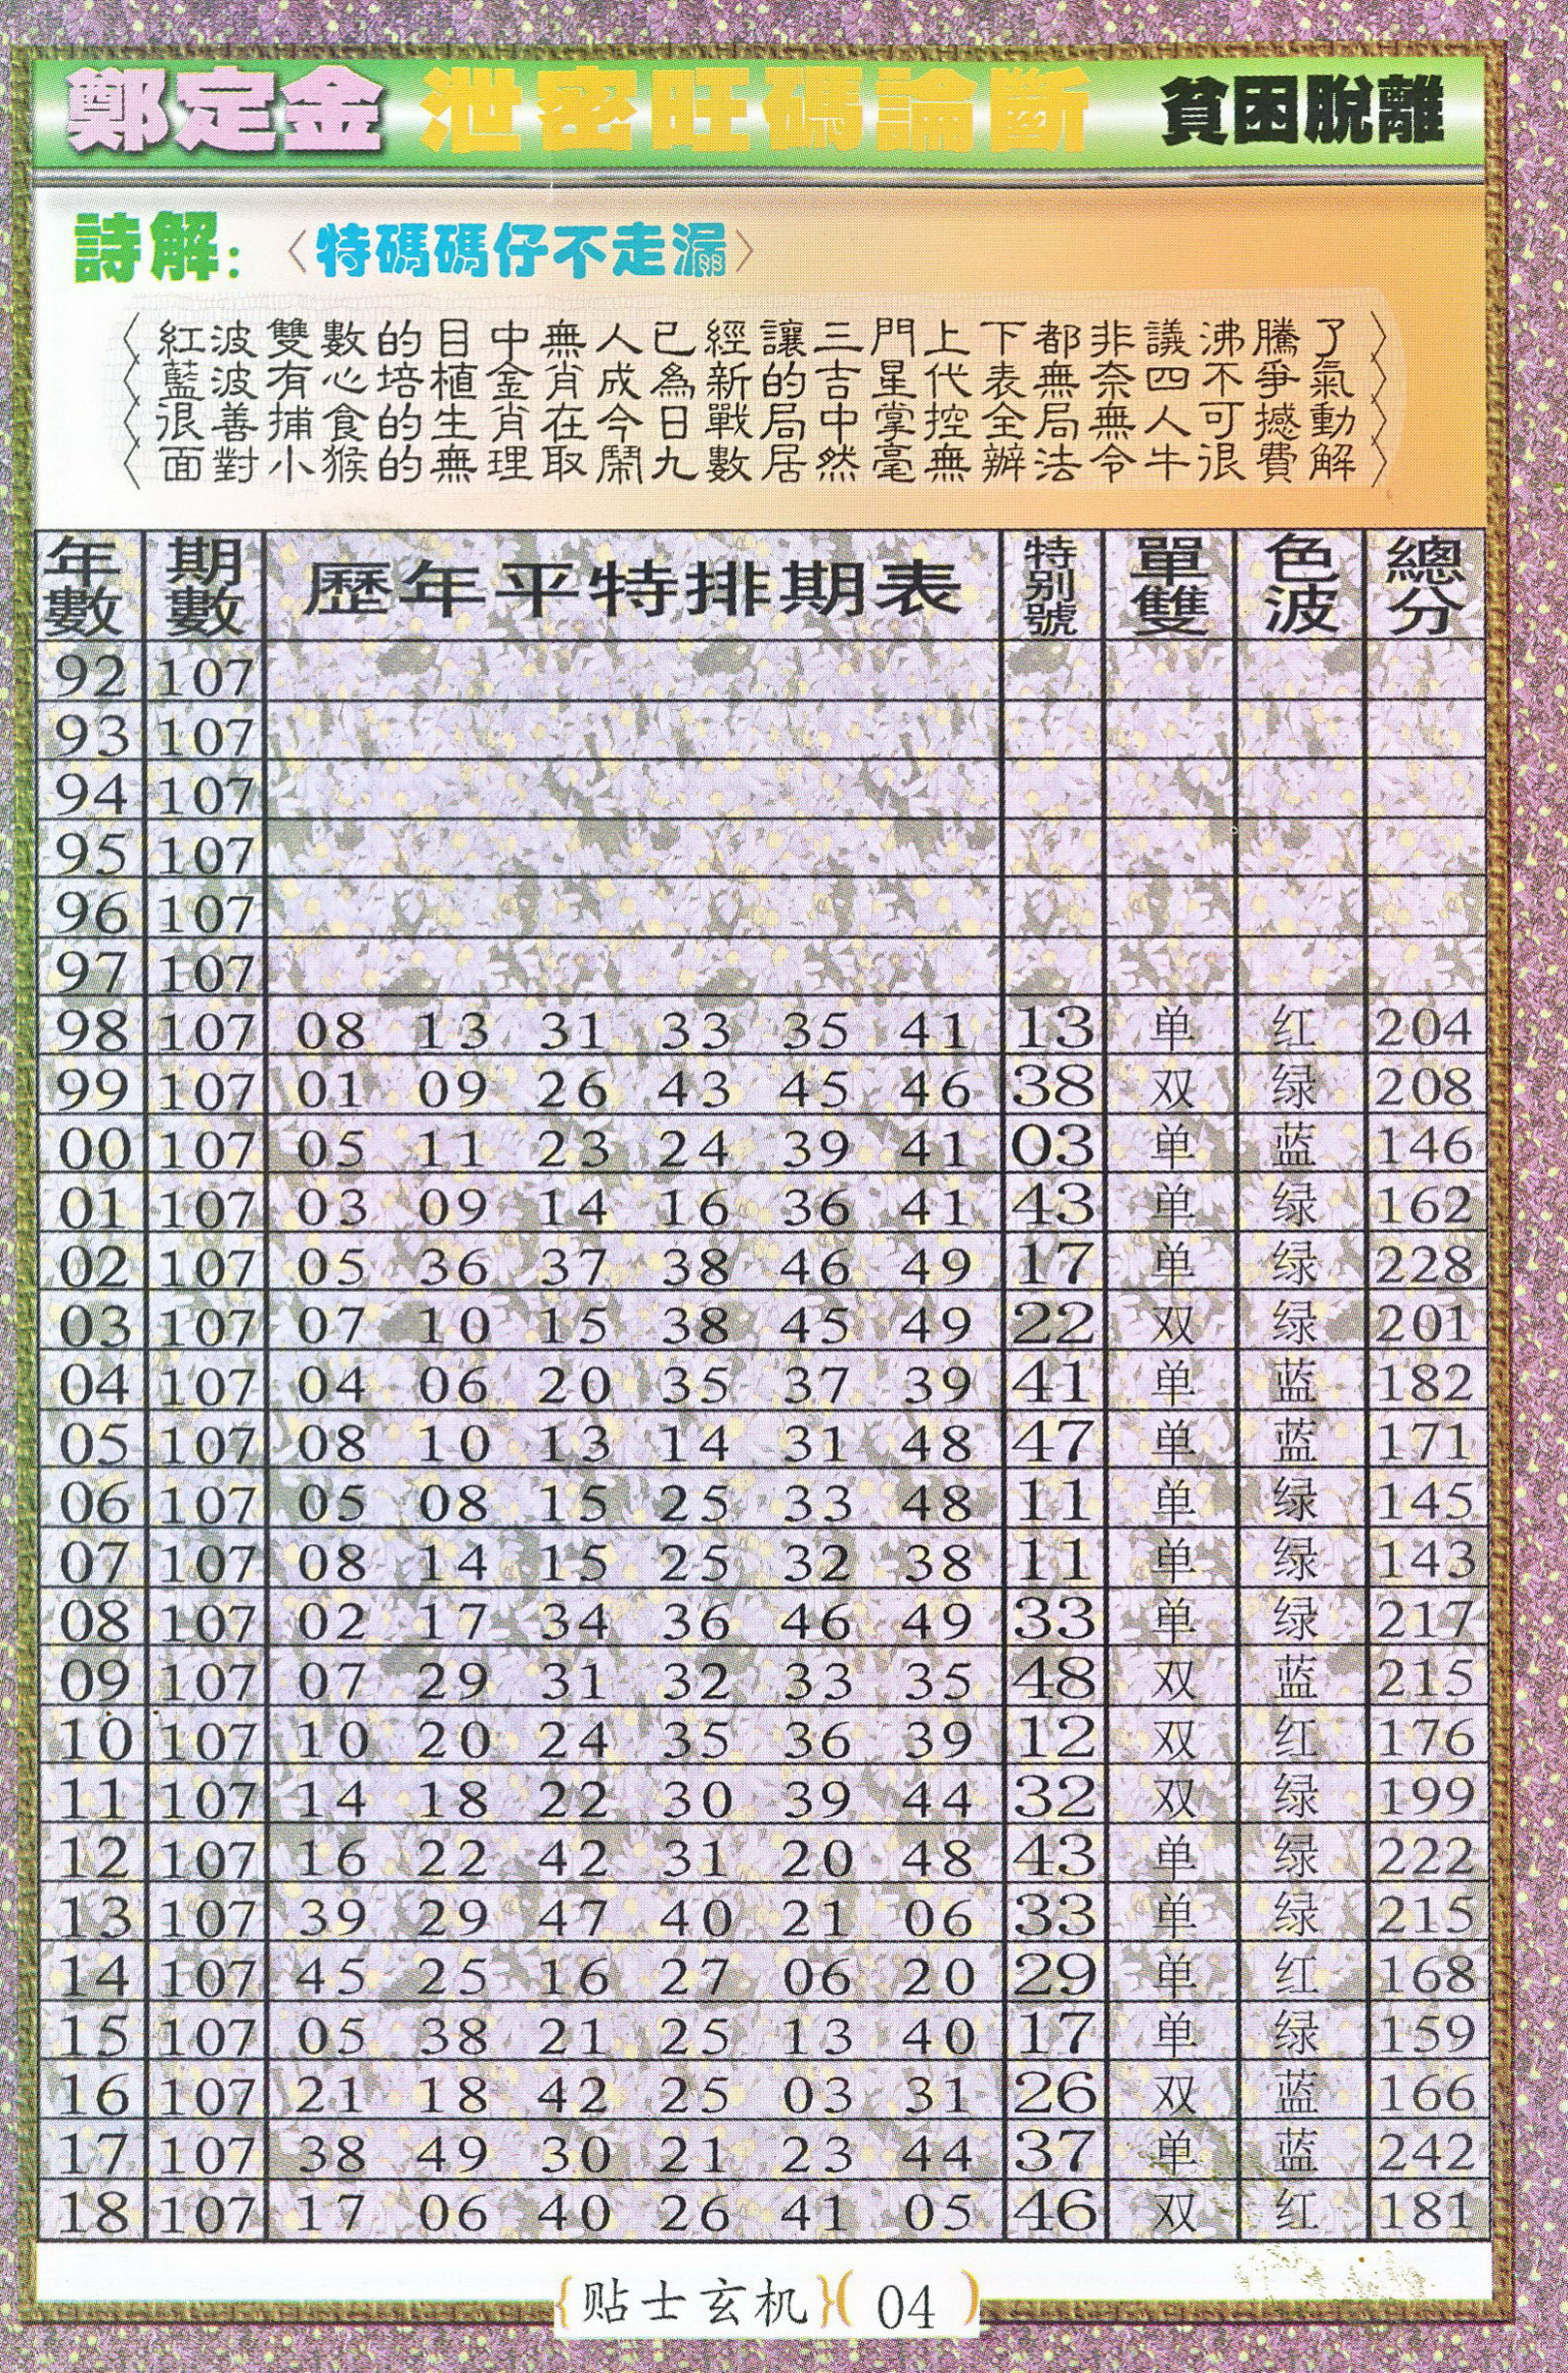 鄭定金 泄密旺碼論斷 貧困脫離
詩解：〈特碼碼仔不走漏〉
〈紅波雙數的目中無人已經讓三門上下都非議沸騰了〉
〈藍波有心培植金肖成為新的吉星代表無奈四不爭氣〉
〈很善捕食的生肖在今日戰局中掌控全局無人可撼動〉
〈面對小猴的無理取鬧九數居然毫無辦法令牛很費解〉
年數 期數 歷年平特排期表 特别號 單雙 色波 總分
92 107
93 107
94 107
95 107
96 107
97 107
98 107 08 13 31 33 35 41 13 单 红 204
99 107 01 09 26 43 45 46 38 双 绿 208
00 107 05 11 23 24 39 41 03 单 蓝 146
01 107 03 09 14 16 36 41 43 单 绿 162
02 107 05 36 37 38 46 49 17 单 绿 228
03 107 07 10 15 38 45 49 22 双 绿 201
04 107 04 06 20 35 37 39 41 单 蓝 182
05 107 08 10 13 14 31 48 47 单 蓝 171
06 107 05 08 15 25 33 48 11 单 绿 145
07 107 08 14 15 25 32 38 11 单 绿 143
08 107 02 17 34 36 46 49 33 单 绿 217
09 107 07 29 31 32 33 35 48 双 蓝 215
10 107 10 20 24 35 36 39 12 双 红 176
11 107 14 18 22 30 39 44 32 双 绿 199
12 107 16 22 42 31 20 48 43 单 绿 222
13 107 39 29 47 40 21 06 33 单 绿 215
14 107 45 25 16 27 06 20 29 单 红 168
15 107 05 38 21 25 13 40 17 单 绿 159
16 107 21 18 42 25 03 31 26 双 蓝 166
17 107 38 49 30 21 23 44 37 单 蓝 242
18 107 17 06 40 26 41 05 46 双 红 181
{贴士玄机}( 04 )